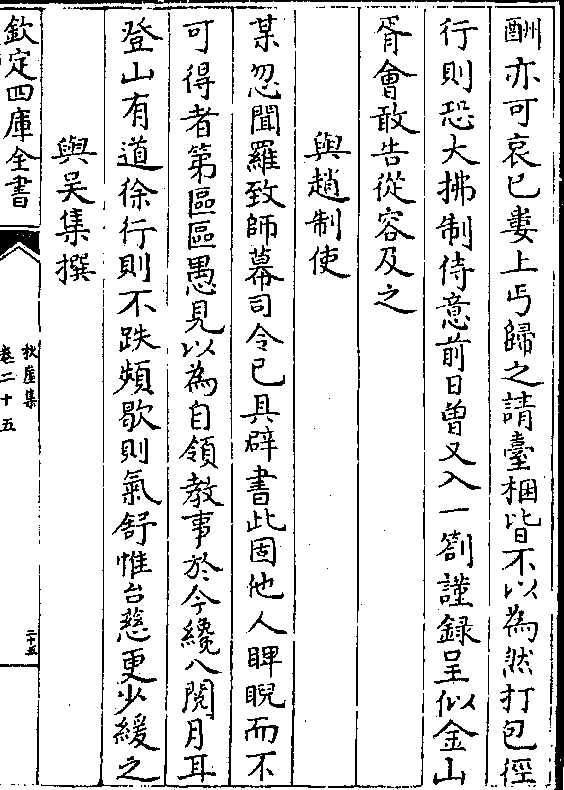 酬亦可哀已婁上丐歸之請臺梱皆不以為然打包徑
行則恐大拂制侍意前日曽又入一劄謹錄呈似金山
胥會敢告從容及之
與趙制使
某忽聞羅致師幕司令已具辟書此固他人睥睨而不
可得者第區區愚見以為自領教事於今纔八閱月耳
登山有道徐行則不跌頻歇則氣舒惟台慈更少緩之
與吴集撰
欽定四庫全書
秋崖集
卷二十五
二十五